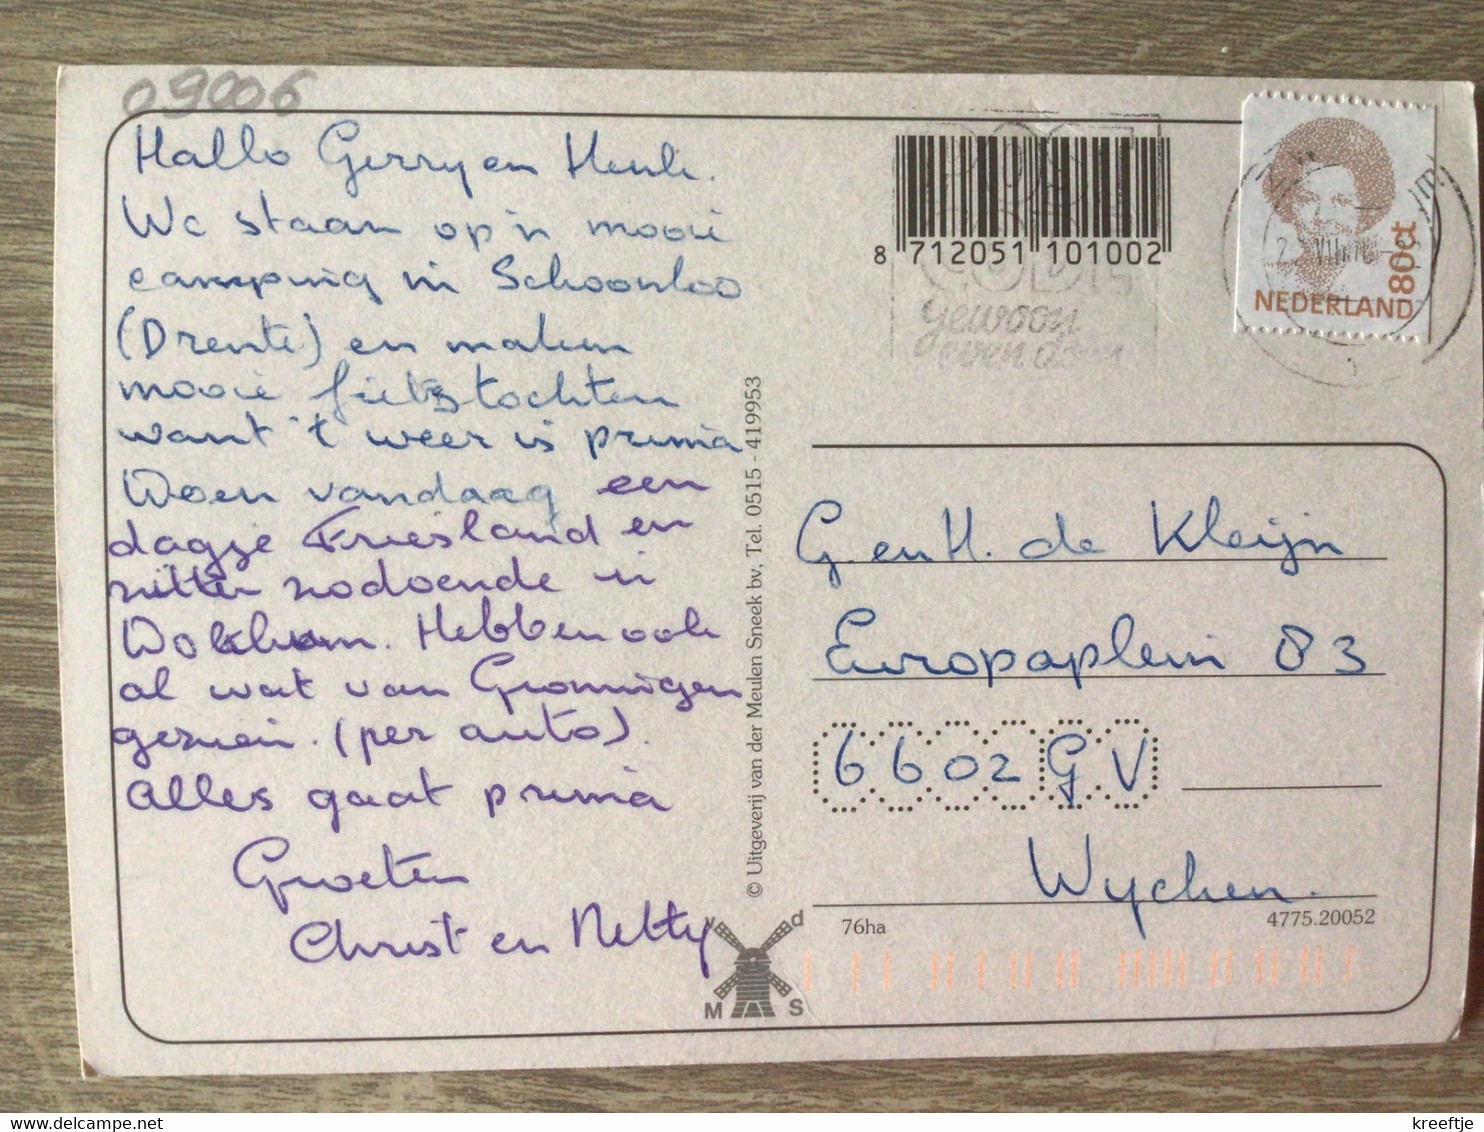 09006
Hallo Gerry en Henk.
We staan op 'n mooie
camping in Schoonloo
(Drente) en maken
mooie fietstochten
want 't weer is prima
Doen vandaag een
dagje Friesland en
zitten zodoende in
Dokkum. Hebben ook
al wat van Groningen
gezien. (per auto).
Alles gaat prima
Groeten
Christ en Netty
© Uitgeverij van der Meulen Sneek bv, Tel. 0515 - 419953
v d
M S
8 712051 101002
POST
CODE
gewoon
even doen
80ct
NEDERLAND
G. en H. de Kleijn
Europaplein 83
6602 GV
Wychen.
76ha
4775.20052
kreeftje